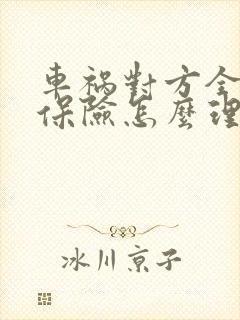 車禍對方全
保險怎麼理
冰川京子